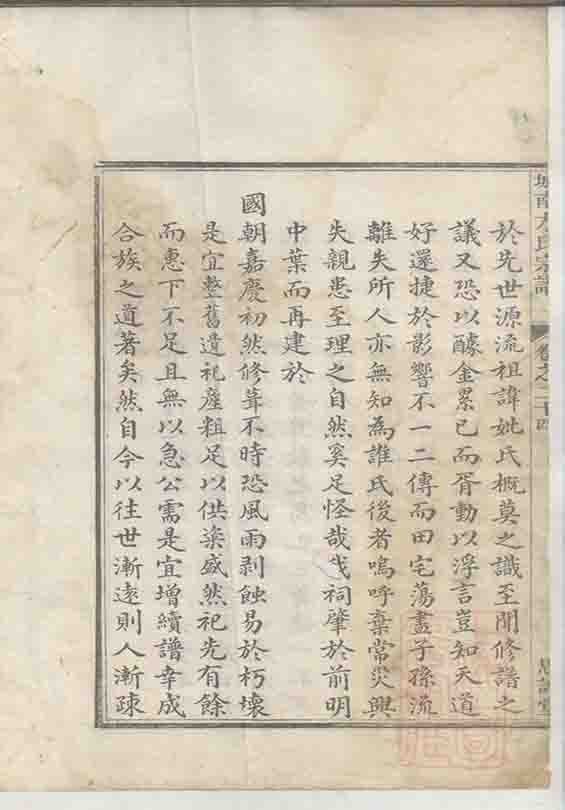 城南方氏宗譜
卷之二十四
於先世源流祖諱妣氏概莫之識至聞修譜之
議又恐以醵金累已而胥動以浮言豈知天道
好還捷於影響不一二傳而田宅蕩盡子孫流
離失所人亦無知為誰氏後者嗚呼棄常災興
失親患至理之自然奚足怪哉我祠肇於前明
中葉而再建於
國朝嘉慶初然修葺不時恐風雨剥蝕易於朽壞
是宜整舊遺祀產粗足以供粢盛然祀先有餘
而惠下不足且無以急公需是宜增續譜幸成
合族之道著矣然自今以往世漸遠則人漸疎